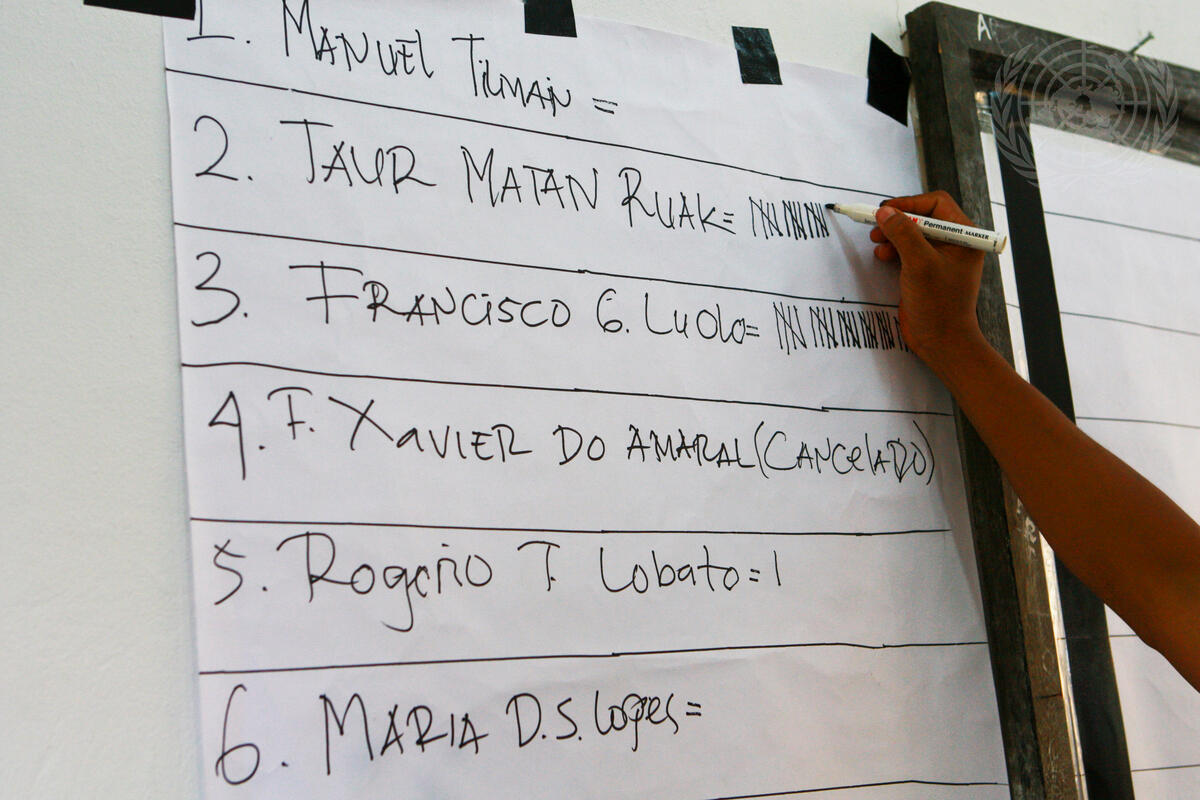 1. MANUEL TILMAN =
2. TAUR MATAN RUAK=
3. FRANCISCO G. LUOLO=
4. F. XAVIER DO AMARAL (CANCELADO)
5. Rogerio T. Lobato=1
6. MARIA D.S. Lopes=
Permanent MARKER
A